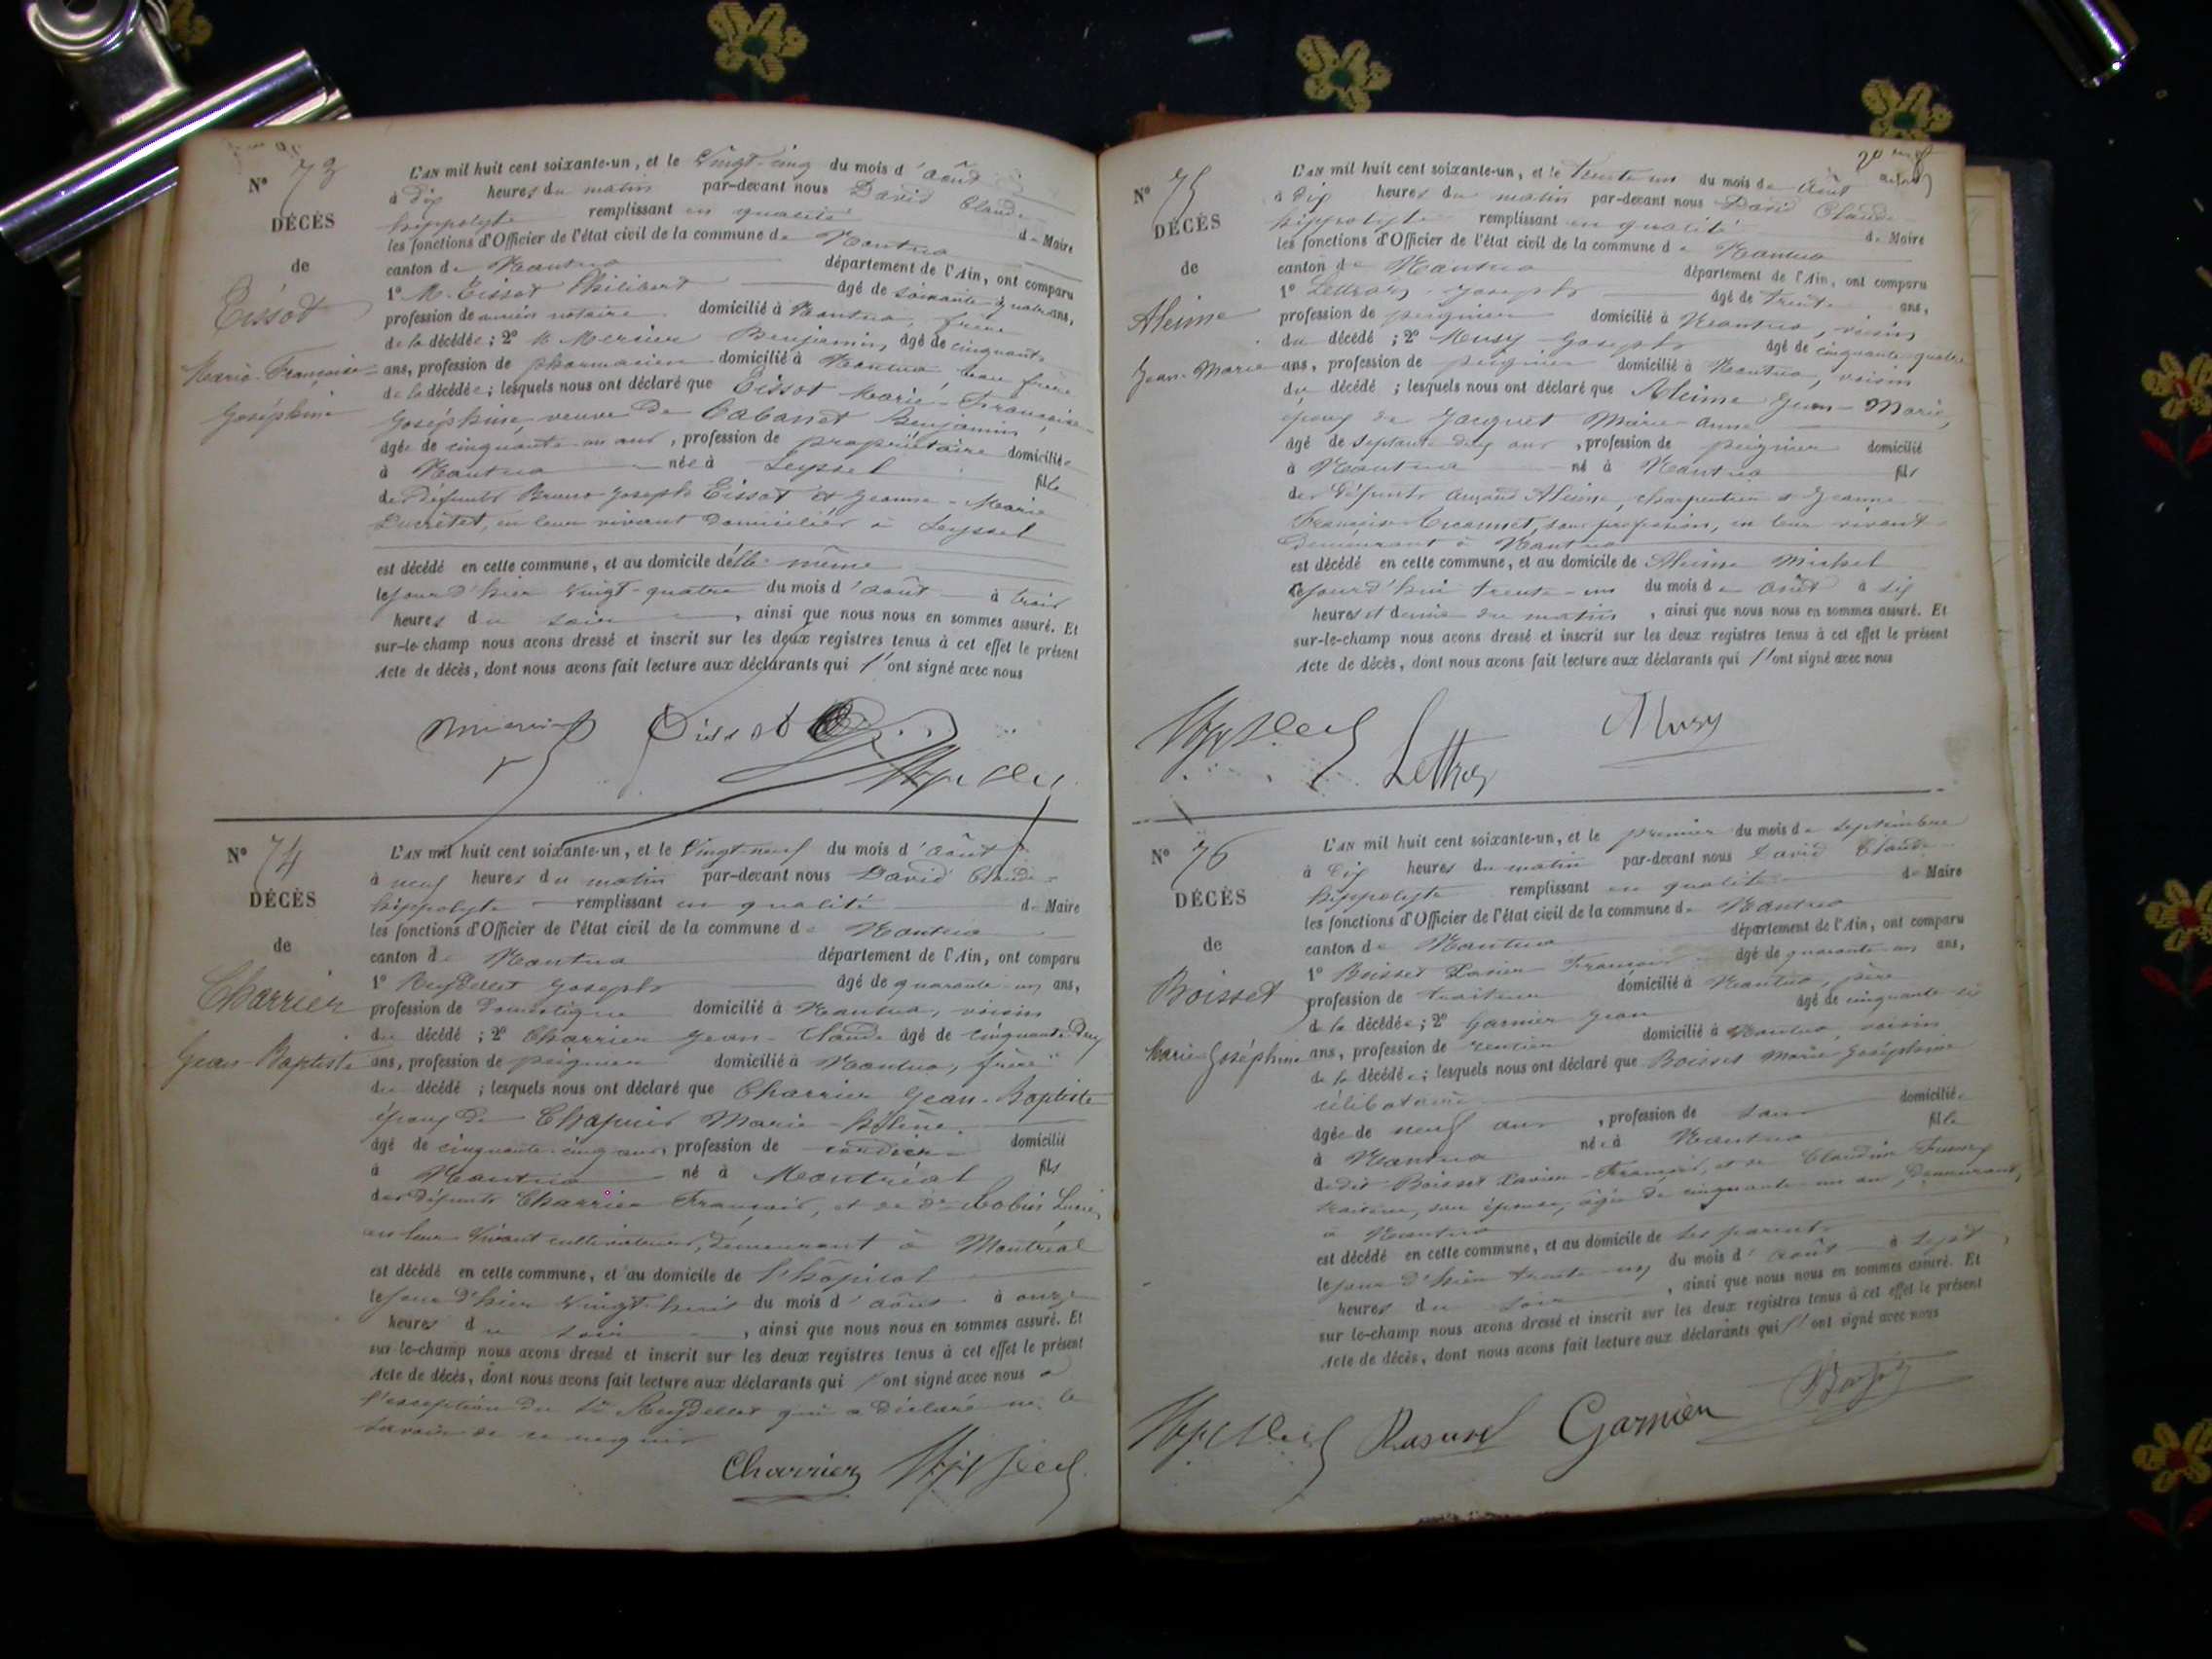 N° 73
DÉCÈS
de
Tissot
Marie-Françoise-
Joséphine
L'AN mil huit cent soixante-un, et le vingt-cinq du mois d'août
à dix heures du matin par-devant nous David Claude-
hippolyte remplissant en qualité de Maire
les fonctions d'Officier de l'état civil de la commune de Nantua
canton de Nantua département de l'Ain, ont comparu
1° M. Tissot Philibert âgé de soixante quatre ans,
profession de ancien notaire domicilié à Nantua, frère
de la décédée; 2° M. Mercier Benjamin, âgé de cinquante
ans, profession de pharmacien domicilié à Nantua, beau frère
de la décédée; lesquels nous ont déclaré que Tissot Marie-Françoise-
Joséphine, veuve de Cabanet Benjamin
âgée de cinquante un ans, profession de propriétaire domiciliée
à Nantua née à Seyssel fille
des défunts Bruno Joseph Tissot et Jeanne-Marie
Lucrétet, en leur vivant domiciliés à Seyssel
est décédé en cette commune, et au domicile d'elle-même
le jour d'hier vingt-quatre du mois d'août à trois
heures du soir, ainsi que nous nous en sommes assuré. Et
sur-le-champ nous avons dressé et inscrit sur les deux registres tenus à cet effet le présent
Acte de décès, dont nous avons fait lecture aux déclarants qui l'ont signé avec nous
Tissot
N° 74
DÉCÈS
de
Charrier
Jean-Baptiste
L'AN mil huit cent soixante-un, et le vingt-neuf du mois d'août
à neuf heures du matin par-devant nous David Claude-
hippolyte remplissant en qualité de Maire
les fonctions d'Officier de l'état civil de la commune de Nantua
canton de Nantua département de l'Ain, ont comparu
1° Joseph âgé de quarante-un ans,
profession de domestique domicilié à Nantua, voisin
du décédé; 2° Charrier Jean-Claude âgé de cinquante-deux
ans, profession de peignier domicilié à Nantua, frère
du décédé; lesquels nous ont déclaré que Charrier Jean-Baptiste
époux de Chapuis Marie-hélène
âgé de cinquante-cinq ans, profession de cordier domicilié
à Nantua né à Montréal fils
des défunts Charrier François, et de dе Robin Lucie,
en leur vivant cultivateurs, demeurant à Montréal
est décédé en cette commune, et au domicile de l'hôpital
le jour d'hier vingt-huit du mois d'août à onze
heures du soir, ainsi que nous nous en sommes assuré. Et
sur-le-champ nous avons dressé et inscrit sur les deux registres tenus à cet effet le présent
Acte de décès, dont nous avons fait lecture aux déclarants qui l'ont signé avec nous à
l'exception du Sr qui a déclaré ne le
savoir de ce requis
Charrier
N° 75
DÉCÈS
de
Aleime
Jean-Marie
L'AN mil huit cent soixante-un, et le trente-un du mois de août
à dix heures du matin par-devant nous David Claude
hippolyte remplissant en qualité de Maire
les fonctions d'Officier de l'état civil de la commune de Nantua
canton de Nantua département de l'Ain, ont comparu
1° Joseph âgé de trente ans,
profession de peignier domicilié à Nantua, voisin
du décédé; 2° Musy Joseph âgé de cinquante-quatre
ans, profession de peignier domicilié à Nantua, voisin
du décédé; lesquels nous ont déclaré que Aleime Jean-Marie,
époux de Jacquet Marie-Anne
âgé de septante deux ans, profession de peignier domicilié
à Nantua né à Nantua fils
des défunts Aleime, charpentier et Jeanne
Françoise sans profession, en leur vivant
demeurant à Nantua
est décédé en cette commune, et au domicile de Aleime Michel
cejourd'hui trente-un du mois de août à six
heures et demie du matin, ainsi que nous nous en sommes assuré. Et
sur-le-champ nous avons dressé et inscrit sur les deux registres tenus à cet effet le présent
Acte de décès, dont nous avons fait lecture aux déclarants qui l'ont signé avec nous
Musy
N° 76
DÉCÈS
de
Boisset
Marie-Joséphine
L'AN mil huit cent soixante-un, et le premier du mois de septembre
à dix heures du matin par-devant nous David Claude
hippolyte remplissant en qualité de Maire
les fonctions d'Officier de l'état civil de la commune de Nantua
canton de Nantua département de l'Ain, ont comparu
1° Boisset Xavier François âgé de quarante-un ans,
profession de traiteur domicilié à Nantua, père
de la décédée; 2° Garnier Jean âgé de cinquante-six
ans, profession de rentier domicilié à Nantua, voisin
de la décédée; lesquels nous ont déclaré que Boisset Marie-Joséphine
célibataire
âgée de neuf ans, profession de sans domiciliée
à Nantua née à Nantua fille
de dit Boisset Xavier-François, et de Claudine
traiteur, son épouse, âgée de cinquante-un an, demeurant
à Nantua
est décédé en cette commune, et au domicile de ses parents
le jour d'hier trente-un du mois d'août à sept
heures du soir, ainsi que nous nous en sommes assuré. Et
sur-le-champ nous avons dressé et inscrit sur les deux registres tenus à cet effet le présent
Acte de décès, dont nous avons fait lecture aux déclarants qui l'ont signé avec nous
Garnier